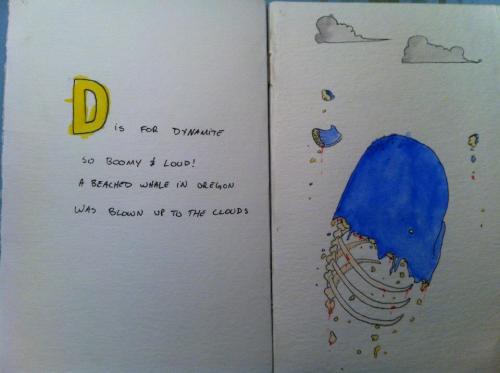 D IS FOR DYNAMITE
SO BOOMY & LOUD!
A BEACHED WHALE IN OREGON
WAS BLOWN UP TO THE CLOUDS